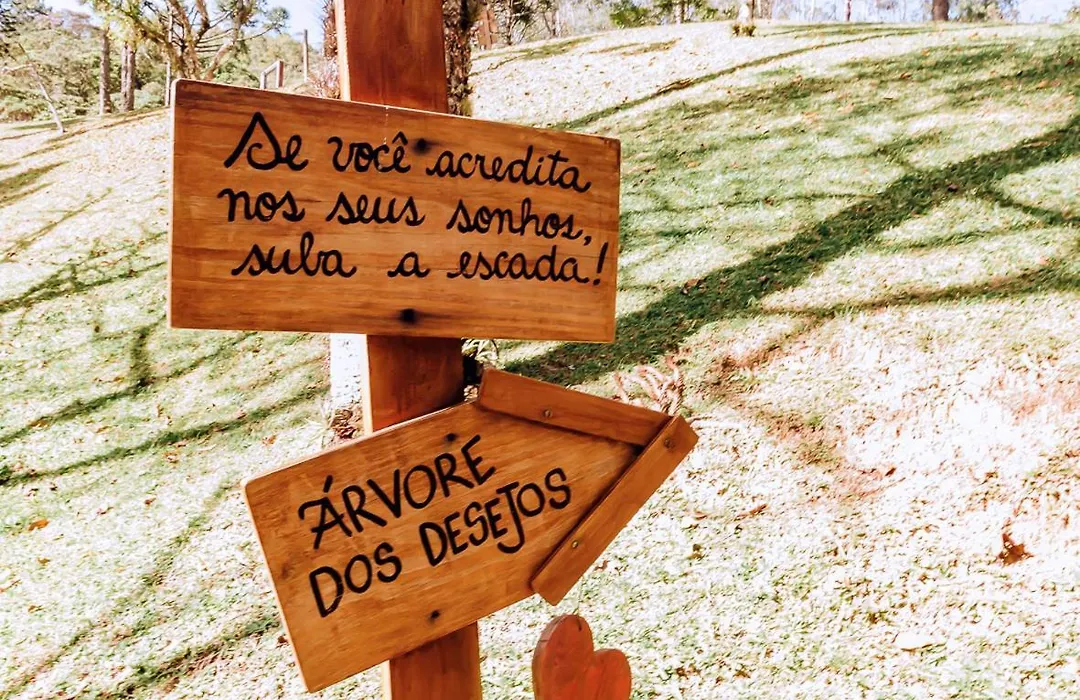 Se você acredita
nos seus sonhos,
suba a escada!
ÁRVORE
DOS DESEJOS